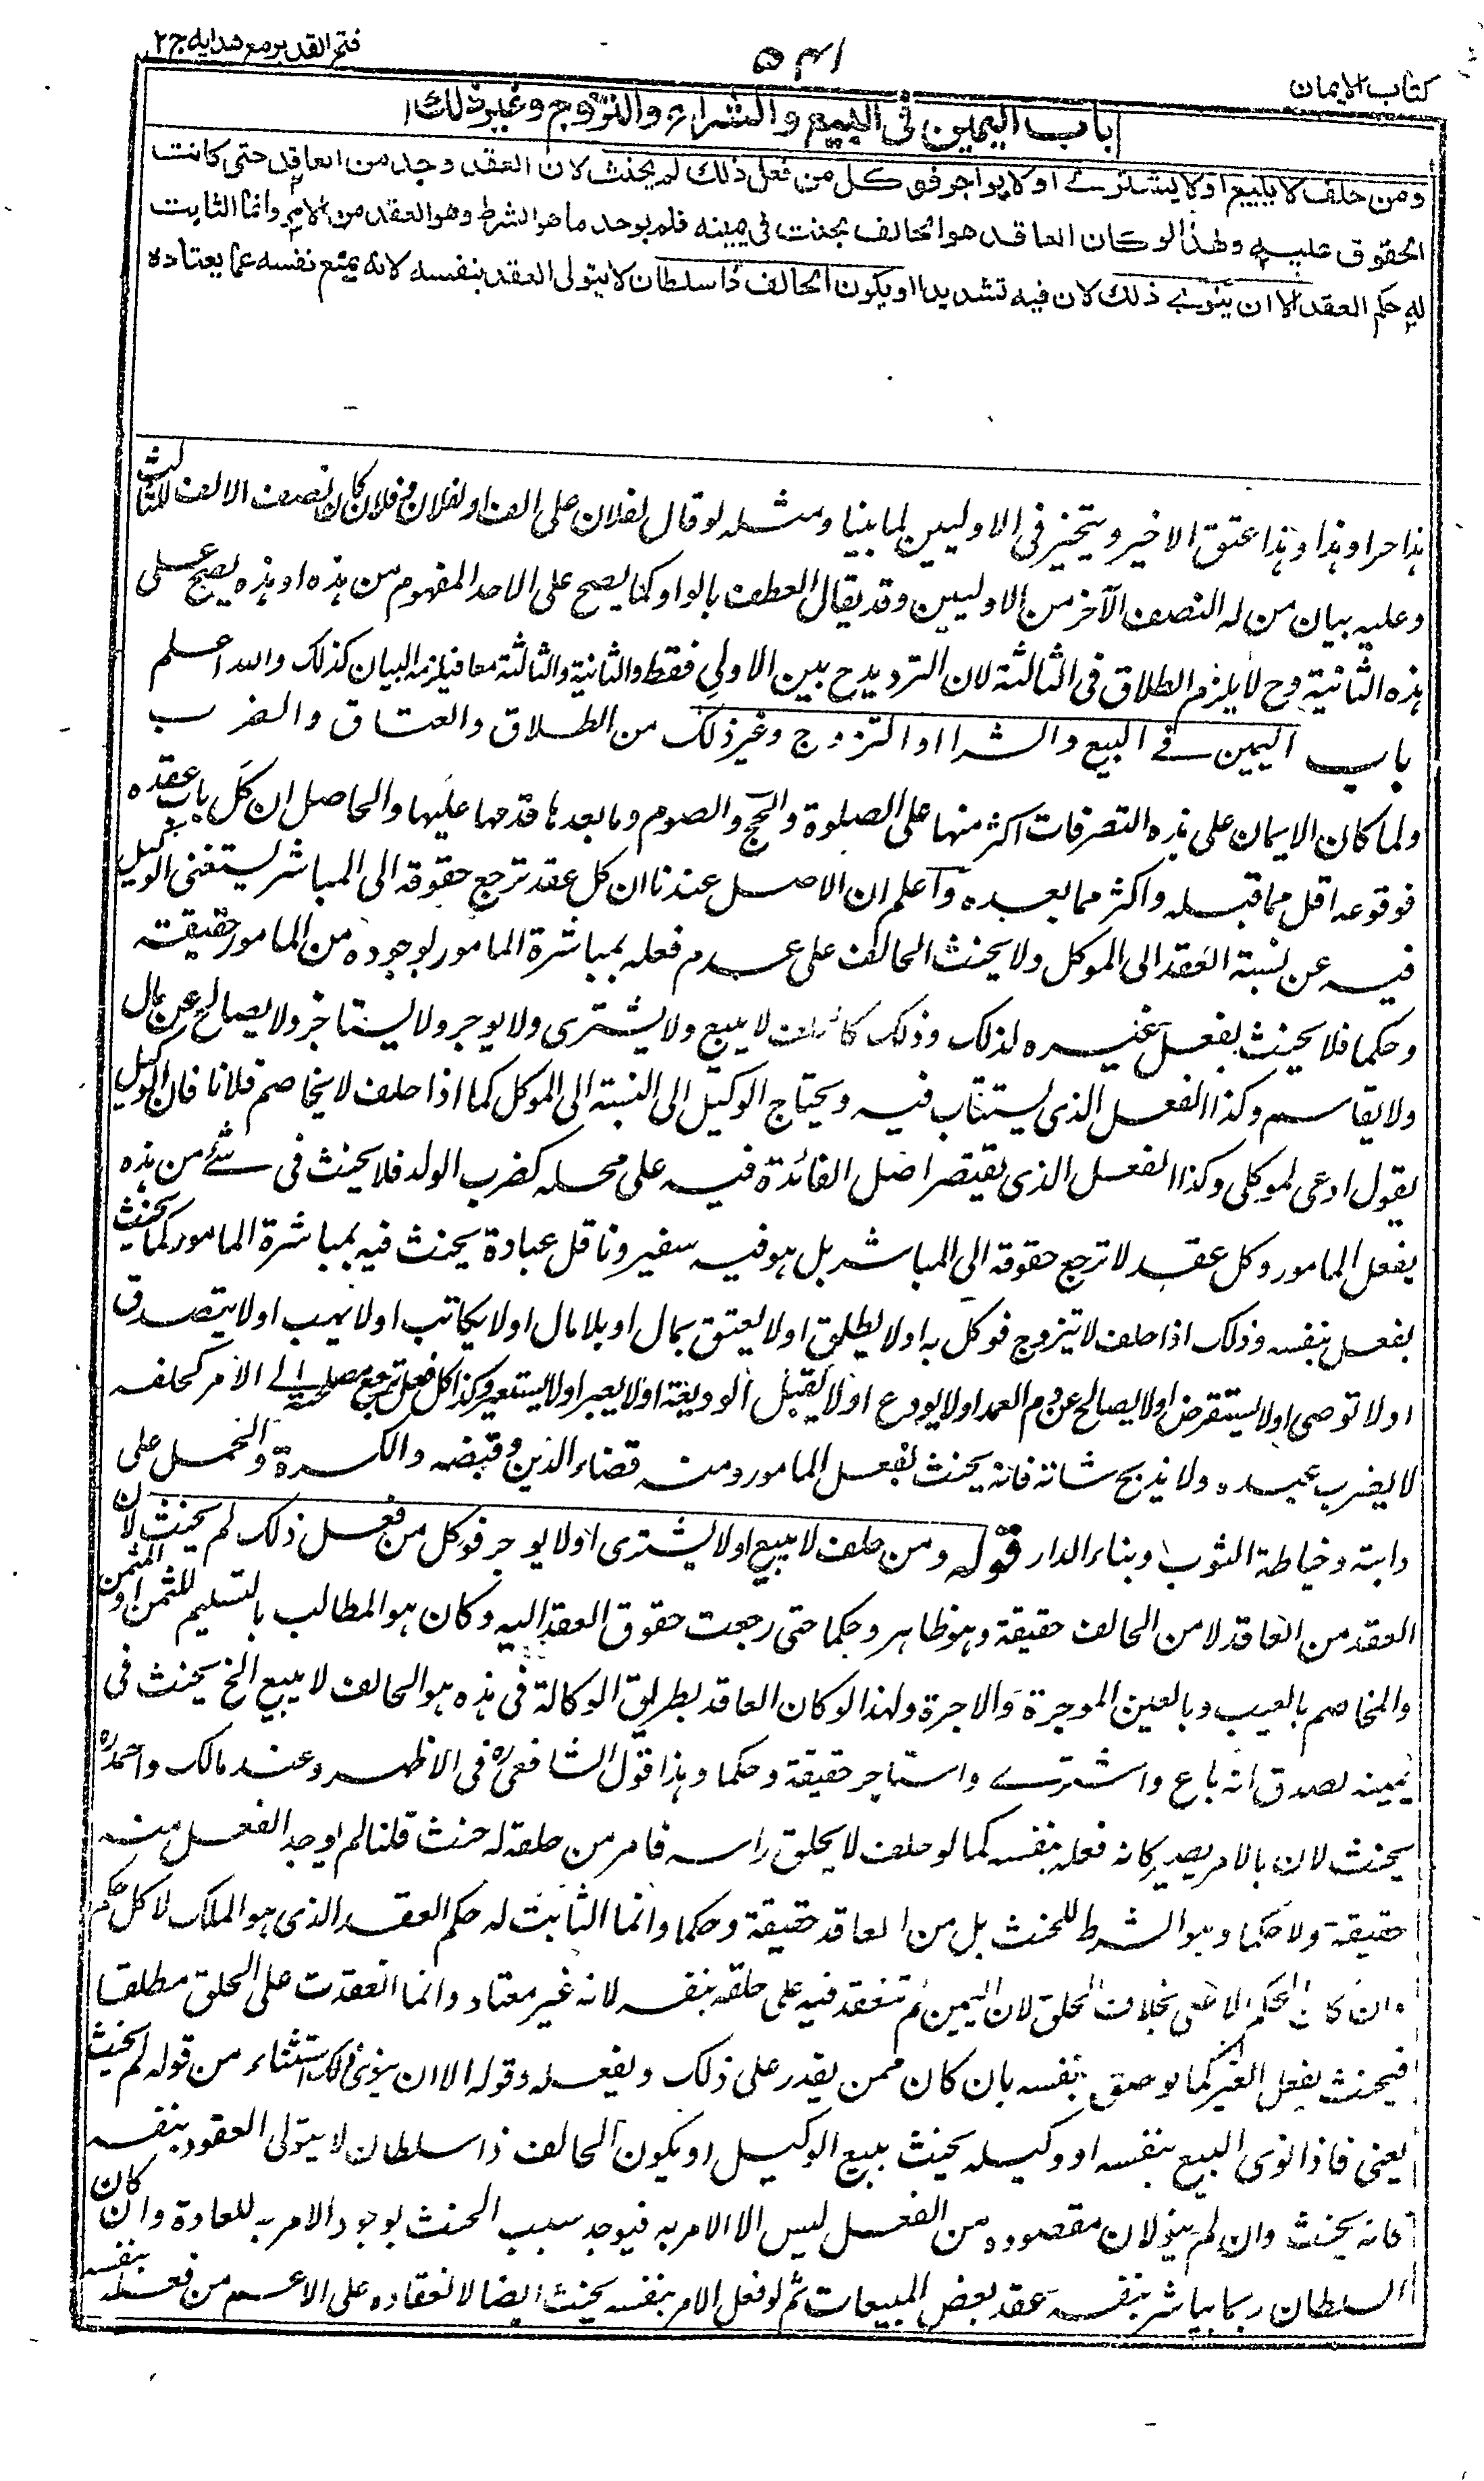 كتاب الايمان
٥٣١
فتح القدير مع هدايه ج٢
باب اليمين فى البيع والشراء والتزوج وغير ذلك
ومن حلف لا يبيع اولا يشترى اولا يواجر فوكل من فعل ذلك لم يحنث لان العقد وجد من العاقد حتى كانت
الحقوق عليه ولهذا لو كان العاقد هو الحالف يحنث فى يمينه فلم يوجد ما هو الشرط وهو العقد من الامر وانما الثابت
له حكم العقد الا ان ينوى ذلك لان فيه تشديدا او يكون الحالف ذا سلطان لا يتولى العقد بنفسه لانه يمنع نفسه عما يعتاده
هذا حر او هذا وهذا عتق الاخير ويتخير فى الاوليين لما بينا ومثله لو قال لفلان على الف او لفلان وفلان كان نصف الالف للثالث
وعليه بيان من له النصف الآخر من الاوليين وقد يقال العطف بالواو كما يصح على الاحد المفهوم من هذه او هذه يصح على
هذه الثانية وح لا يلزم الطلاق فى الثالثة لان الترديد ح بين الاولى فقط والثانية والثالثة معا فيلزمه البيان كذلك والله اعلم
باب اليمين فى البيع والشراء والتزوج وغير ذلك من الطلاق والعتاق والضرب
ولما كان الايمان على هذه التصرفات اكثر منها على الصلوة والحج والصوم وما بعدها قدمها عليها والحاصل ان كل باب عقده
فوقوعه اقل مما قبله واكثر مما بعده واعلم ان الاصل عندنا ان كل عقد ترجع حقوقه الى المباشر يستغنى الوكيل
فيه عن نسبة العقد الى الموكل ولا يحنث الحالف على عدم فعله بمباشرة المامور لوجوده من المامور حقيقته
وحكما فلا يحنث بفعل غيره لذلك وذلك كالحلف لا يبيع ولا يشترى ولا يوجر ولا يستاجر ولا يصالح عن مال
ولا يقاسم وكذا الفعل الذى يستناب فيه ويحتاج الوكيل الى النسبة الى الموكل كما اذا حلف لا يخاصم فلانا فان الوكيل
يقول ادعى لموكلى وكذا الفعل الذى يقتصر اصل الفائدة فيه على محله كضرب الولد فلا يحنث فى شئ من هذه
بفعل المامور وكل عقد لا ترجع حقوقه الى المباشر بل هو فيه سفير وناقل عبارة يحنث فيه بمباشرة المامور كما يحنث
بفعل بنفسه وذلك اذا حلف لا يتزوج فوكل به اولا يطلق اولا يعتق بمال او بلا مال اولا يكاتب اولا يهب اولا يتصدق
اولا توصى اولا يستقرض اولا يصالح عن دم العمد اولا يودع اولا يقبل الوديعة اولا يعير اولا يستعير وكذا كل فعل ترجع مصلحته الى الامر كحلفه
لا يضرب عبده ولا يذبح شاته فانه يحنث بفعل المامور ومنه قضاء الدين وقبضه والكسوة والحمل على
دابته وخياطة الثوب وبناء الدار قوله ومن حلف لا يبيع اولا يشترى اولا يوجر فوكل من فعل ذلك لم يحنث لان
العقد من العاقد لا من الحالف حقيقة وهو ظاهر وحكما حتى رجعت حقوق العقد اليه وكان هو المطالب بالتسليم للثمن او المثمن
والمخاصم بالعيب وبالعين الموجرة والاجرة ولهذا لو كان العاقد بطريق الوكالة فى هذه هو الحالف لا يبيع الخ يحنث فى
يمينه لصدق انه باع واشترى واستاجر حقيقة وحكما وهذا قول الشافعى ره فى الاظهر وعند مالك واحمد ره
يحنث لان بالامر يصير كانه فعله بنفسه كما لو حلف لا يحلق راسه فامر من حلقه له حنث قلنا لم يوجد الفعل منه
حقيقة ولا حكما وهو الشرط للحنث بل من العاقد حقيقة وحكما وانما الثابت له حكم العقد الذى هو الملك لا كل حكم
وان كان الحكم الاعلى بخلاف الحلق لان اليمين لم تنعقد فيه على حلقه بنفسه لانه غير معتاد وانما انعقدت على الحلق مطلقا
فيحنث بفعل الغير كما لو حلق بنفسه بان كان ممن يقدر على ذلك ويفعله وقوله الا ان ينوى ذلك استثناء من قوله لم يحنث
يعنى فاذا نوى البيع بنفسه او وكيله يحنث ببيع الوكيل او يكون الحالف ذا سلطان لا يتولى العقود بنفسه
فانه يحنث وان لم ينو لان مقصوده من الفعل ليس الا الامر به فيوجد سبب الحنث بوجود الامر به للعادة وان كان
السلطان ربما يباشر بنفسه عقد بعض المبيعات ثم لو فعل الامر بنفسه يحنث ايضا لانعقاده على الاعم من فعله بنفسه